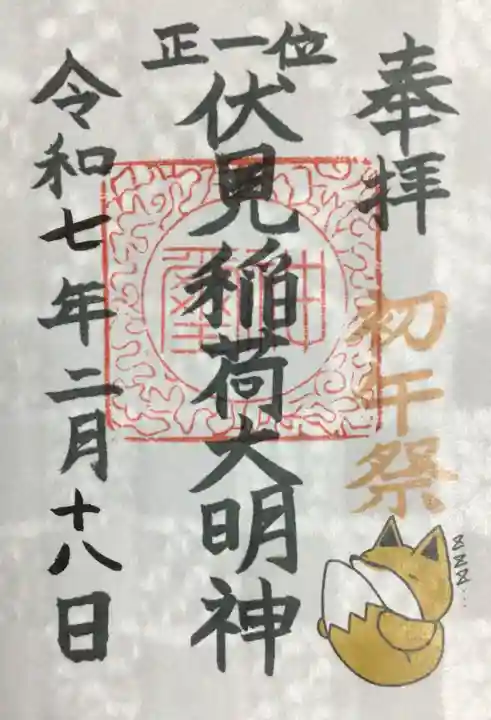 奉拝
初午祭
zzz...
正一位
伏見稲荷大明神
令和七年二月十八日